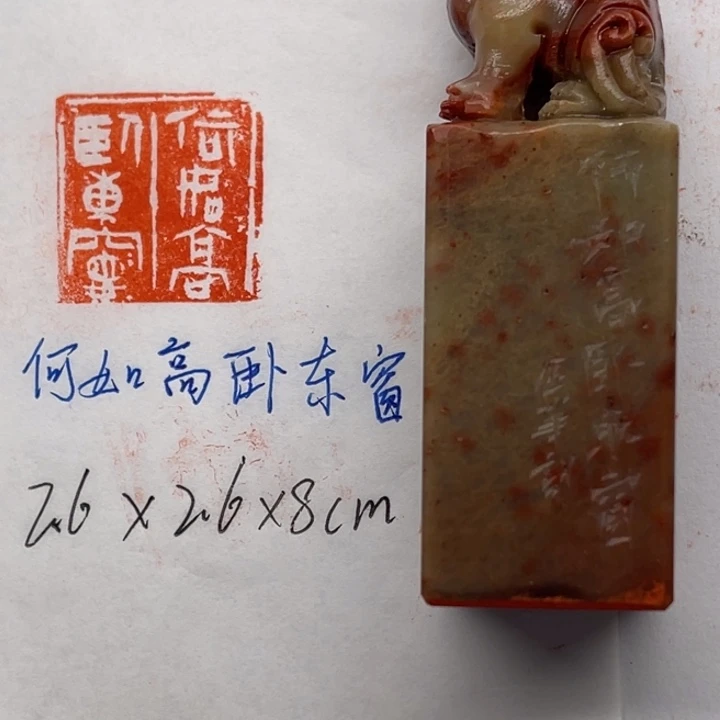 何如高
卧東窗
何如高卧东窗
2.6 x 2.6 x 8cm
何如高卧東窗